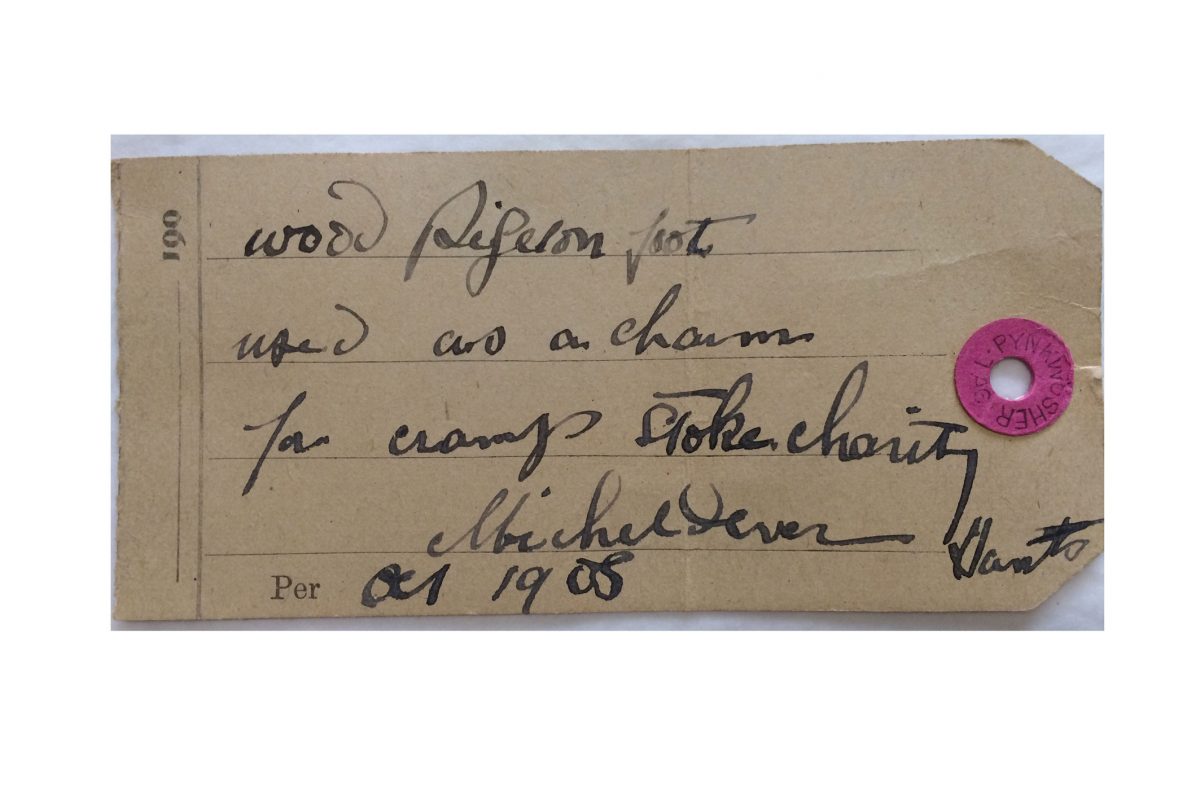 190
wood Pigeon foot
used as a charm
for cramp Stoke Charity
Micheldever Hants
Per Oct 1908